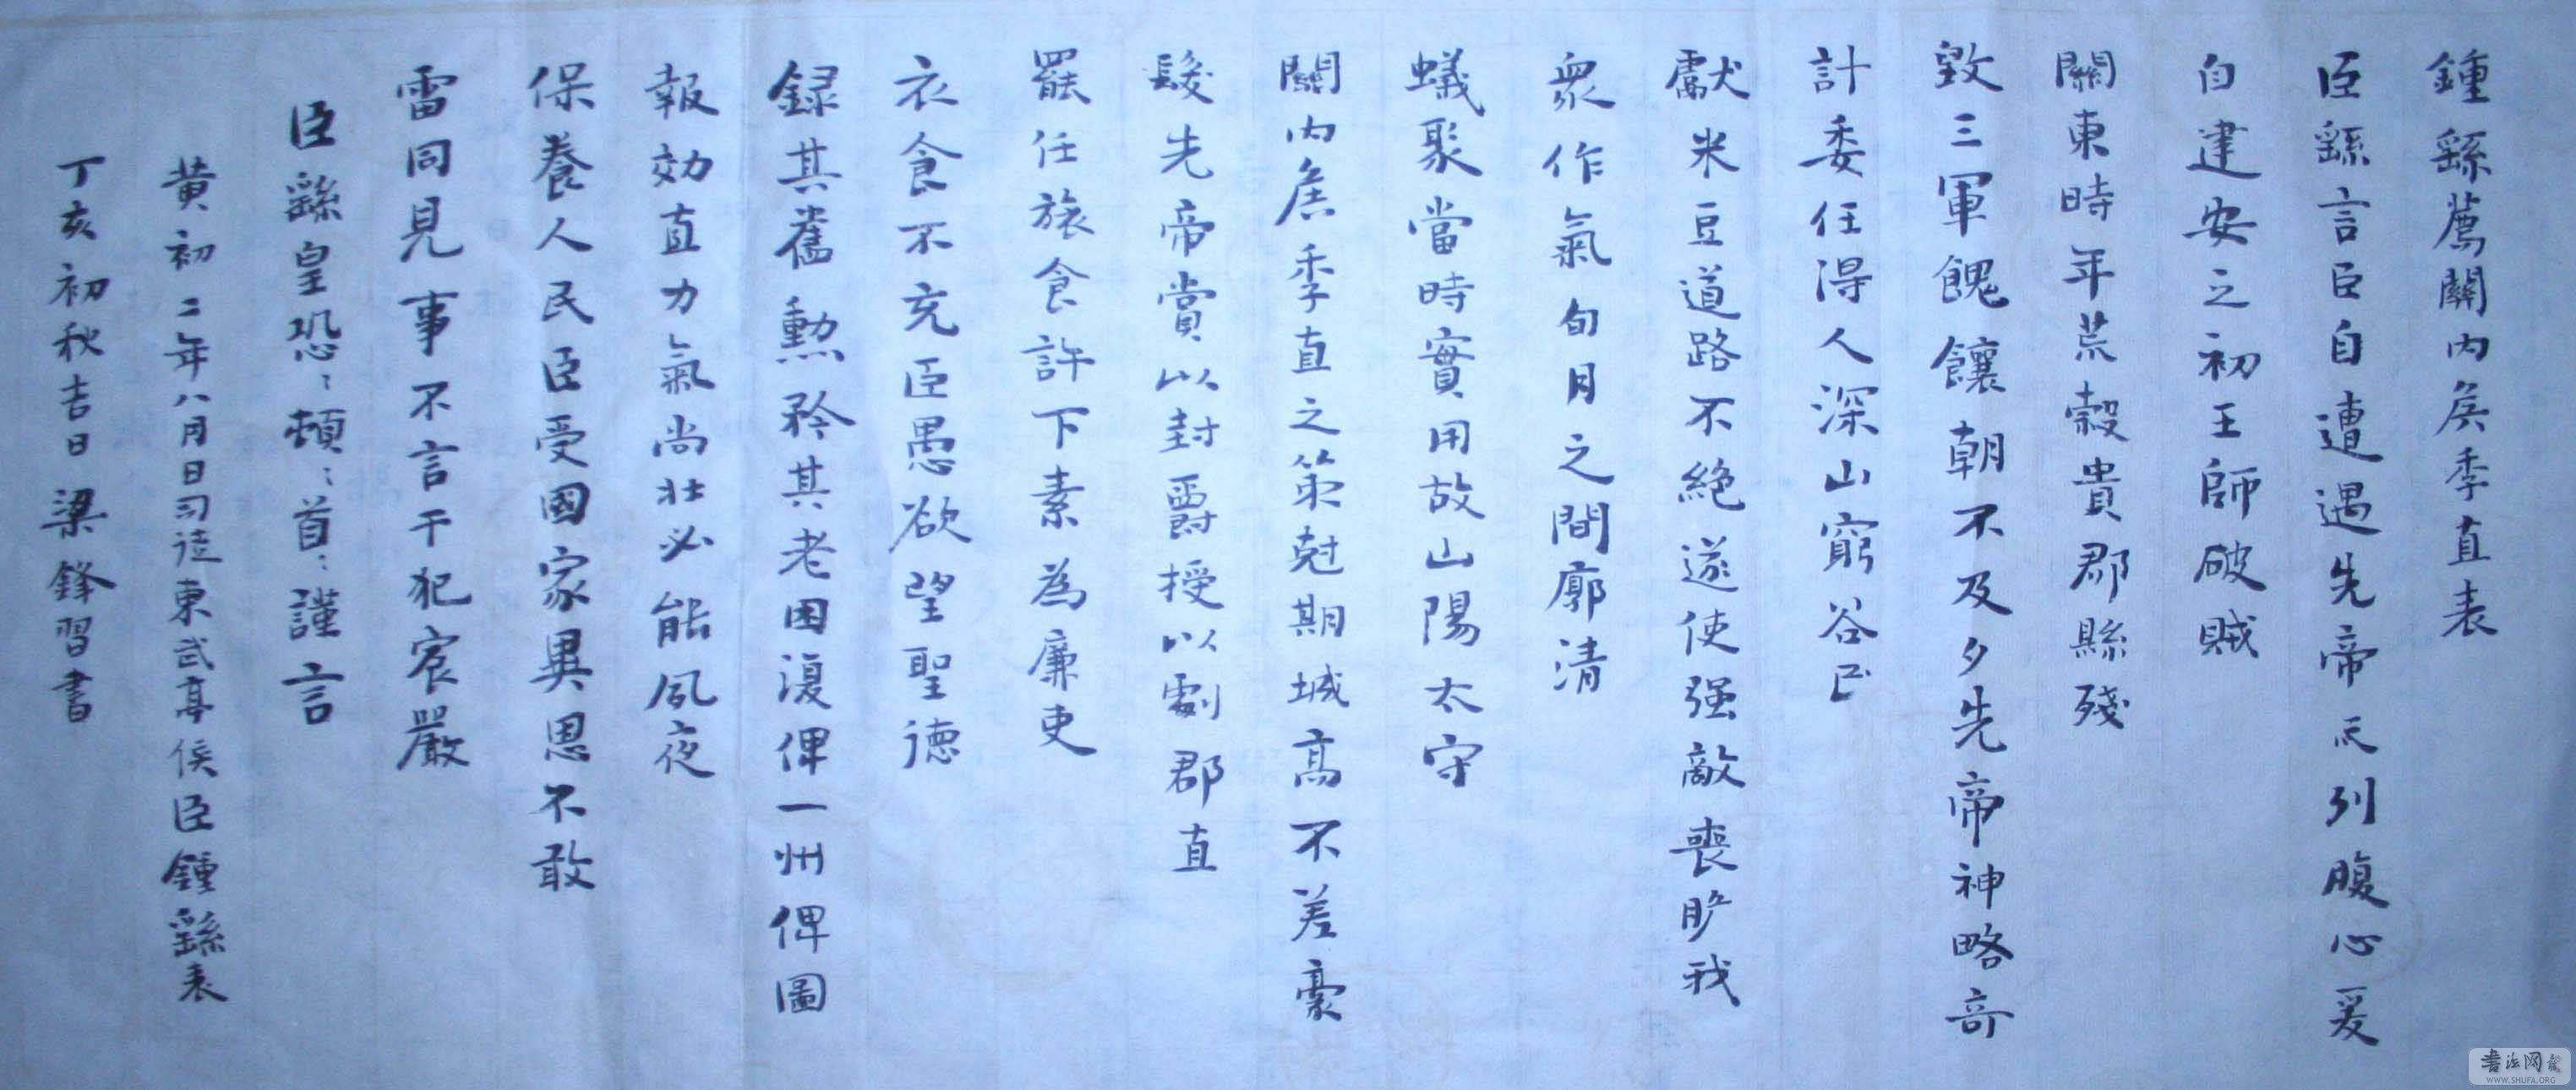 鍾繇薦關內侯季直表
臣繇言臣自遭遇先帝忝列腹心爰
自建安之初王師破賊
關東時年荒穀貴郡縣殘
毀三軍餽饟朝不及夕先帝神略奇
計委任得人深山窮谷民
獻米豆道路不絕遂使强敵喪膽我
眾作氣旬月之間廓清
蟻聚當時實用故山陽太守
關內侯季直之策尅期城高不差豪
髮先帝賞以封爵授以劇郡直
罷任旅食許下素為廉吏
衣食不充臣愚欲望聖德
録其舊勳矜其老困復俾一州俾圖
報効直力氣尚壯必能夙夜
保養人民臣受國家異恩不敢
雷同見事不言干犯宸嚴
臣繇皇恐〻頓〻首〻謹言
黄初二年八月日司徒東武亭侯臣鍾繇表
丁亥初秋吉日梁鋒習書
書法网
WWW.SHUFA.ORG